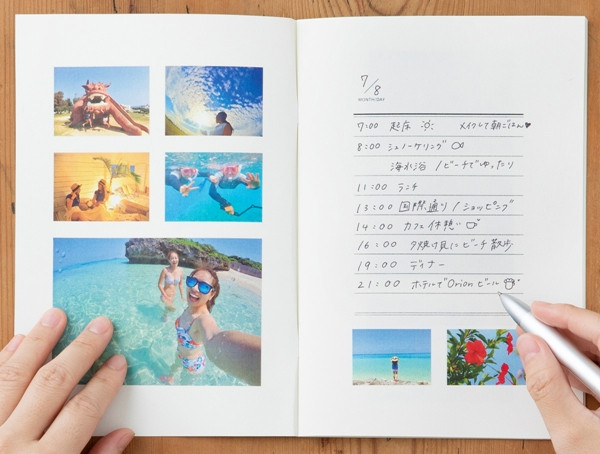 7/8
MONTH/DAY
7:00 起床 メイクして朝ごはん
8:00 シュノーケリング
海水浴 / ビーチでゆったり
11:00 ランチ
13:00 国際通り / ショッピング
14:00 カフェ休憩
16:00 夕焼け見にビーチ散歩
19:00 ディナー
21:00 ホテルでOrionビール